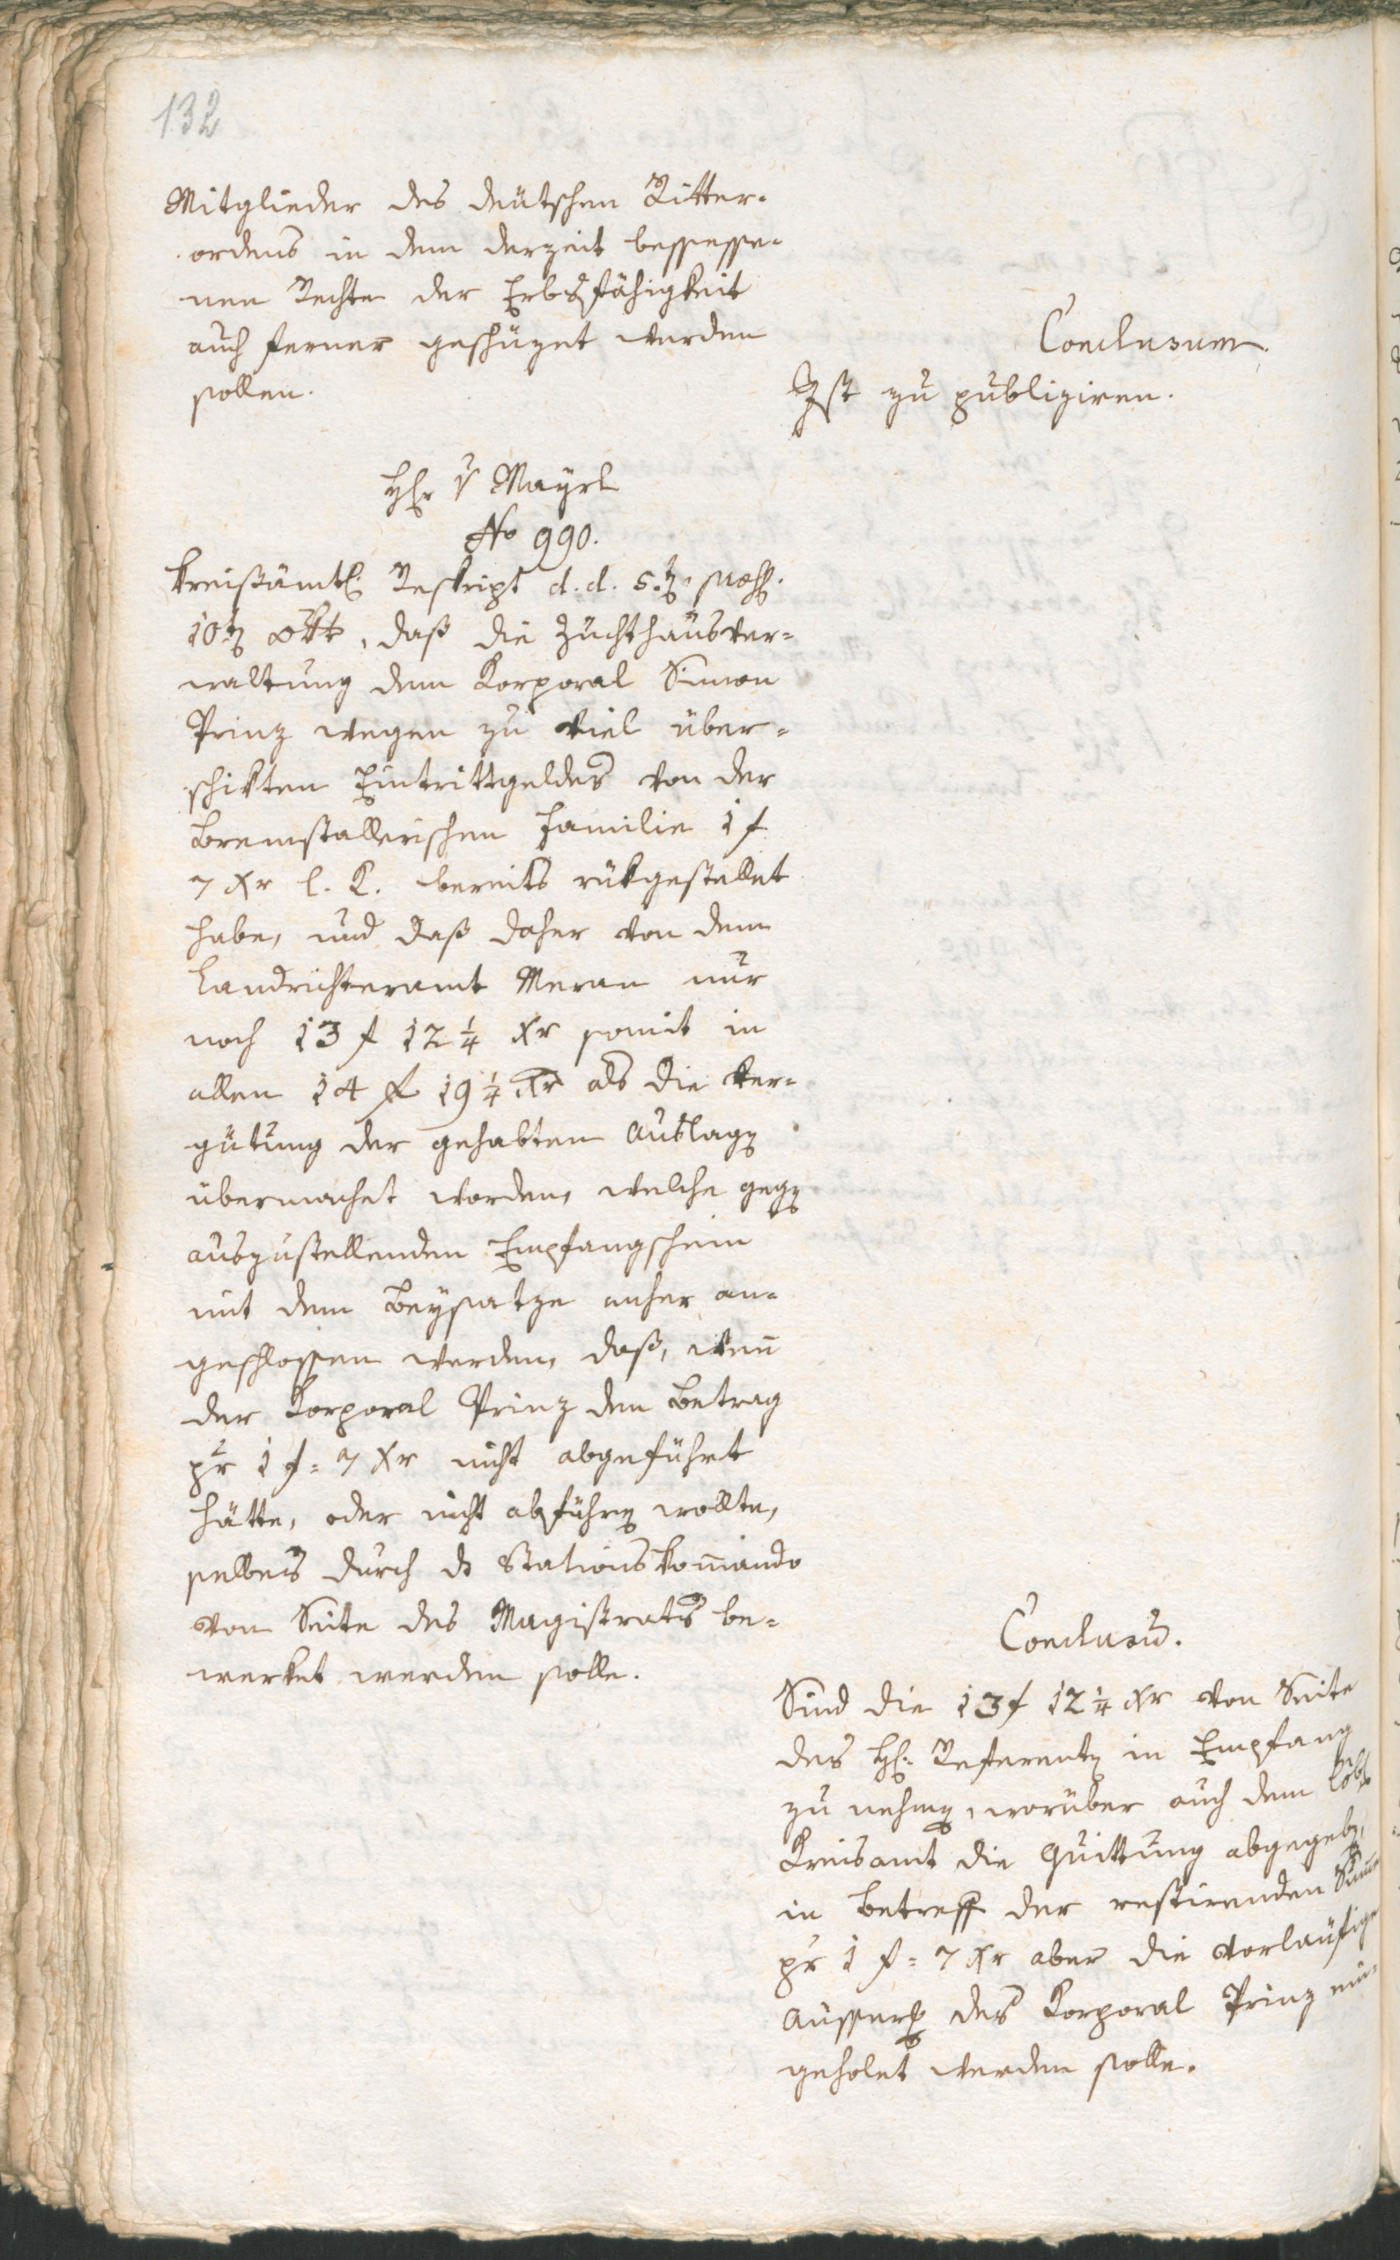 132
Mitglieder des deütschen Ritter-
ordens in dem derzeit besesse-
nen Rechte der Erbsfähigkeit
auch ferner geschüzet werden
sollen.
Conclusum.
Ist zu publiziren.
H: v Mayrl
No 990.
Kreisämtl. Reskript d. d. 5. praes.
10 8br, daß die Zuchthausver-
waltung dem Korporal Simon
Prinz wegen zu viel über-
schikten Eintrittgeldes von der
Bremstallerischen Familie 1 f
7 Xr l. K. bereits rükgestellet
habe, und daß daher von dem
Landrichteramt Meran nur
noch 13 f 12 1/4 Xr somit in
allen 14 f 19 1/4 Xr als die Ver-
gütung der gehabten Auslagen
übermachet worden, welche gegen
auszustellenden Empfangschein
mit dem Beysatze anher an-
geschlossen werden, daß, wenn
der Korporal Prinz den Betrag
pr 1 f = 7 Xr nicht abgeführt
hätte, oder nicht abführen wollte,
selbes durch ds Stationskommando
von Seite des Magistrats be-
werket werden solle.
Conclusū.
Sind die 13 f 12 1/4 Xr von Seite
des H: Referenten in Empfang
zu nehmen, worüber auch dem Löbl
Kreisamt die Quittung abgegeben,
in Betreff der restirenden Summe
pr 1 f = 7 Xr aber die vorläufige
Ausserung des Korporal Prinz ein-
geholet werden solle.